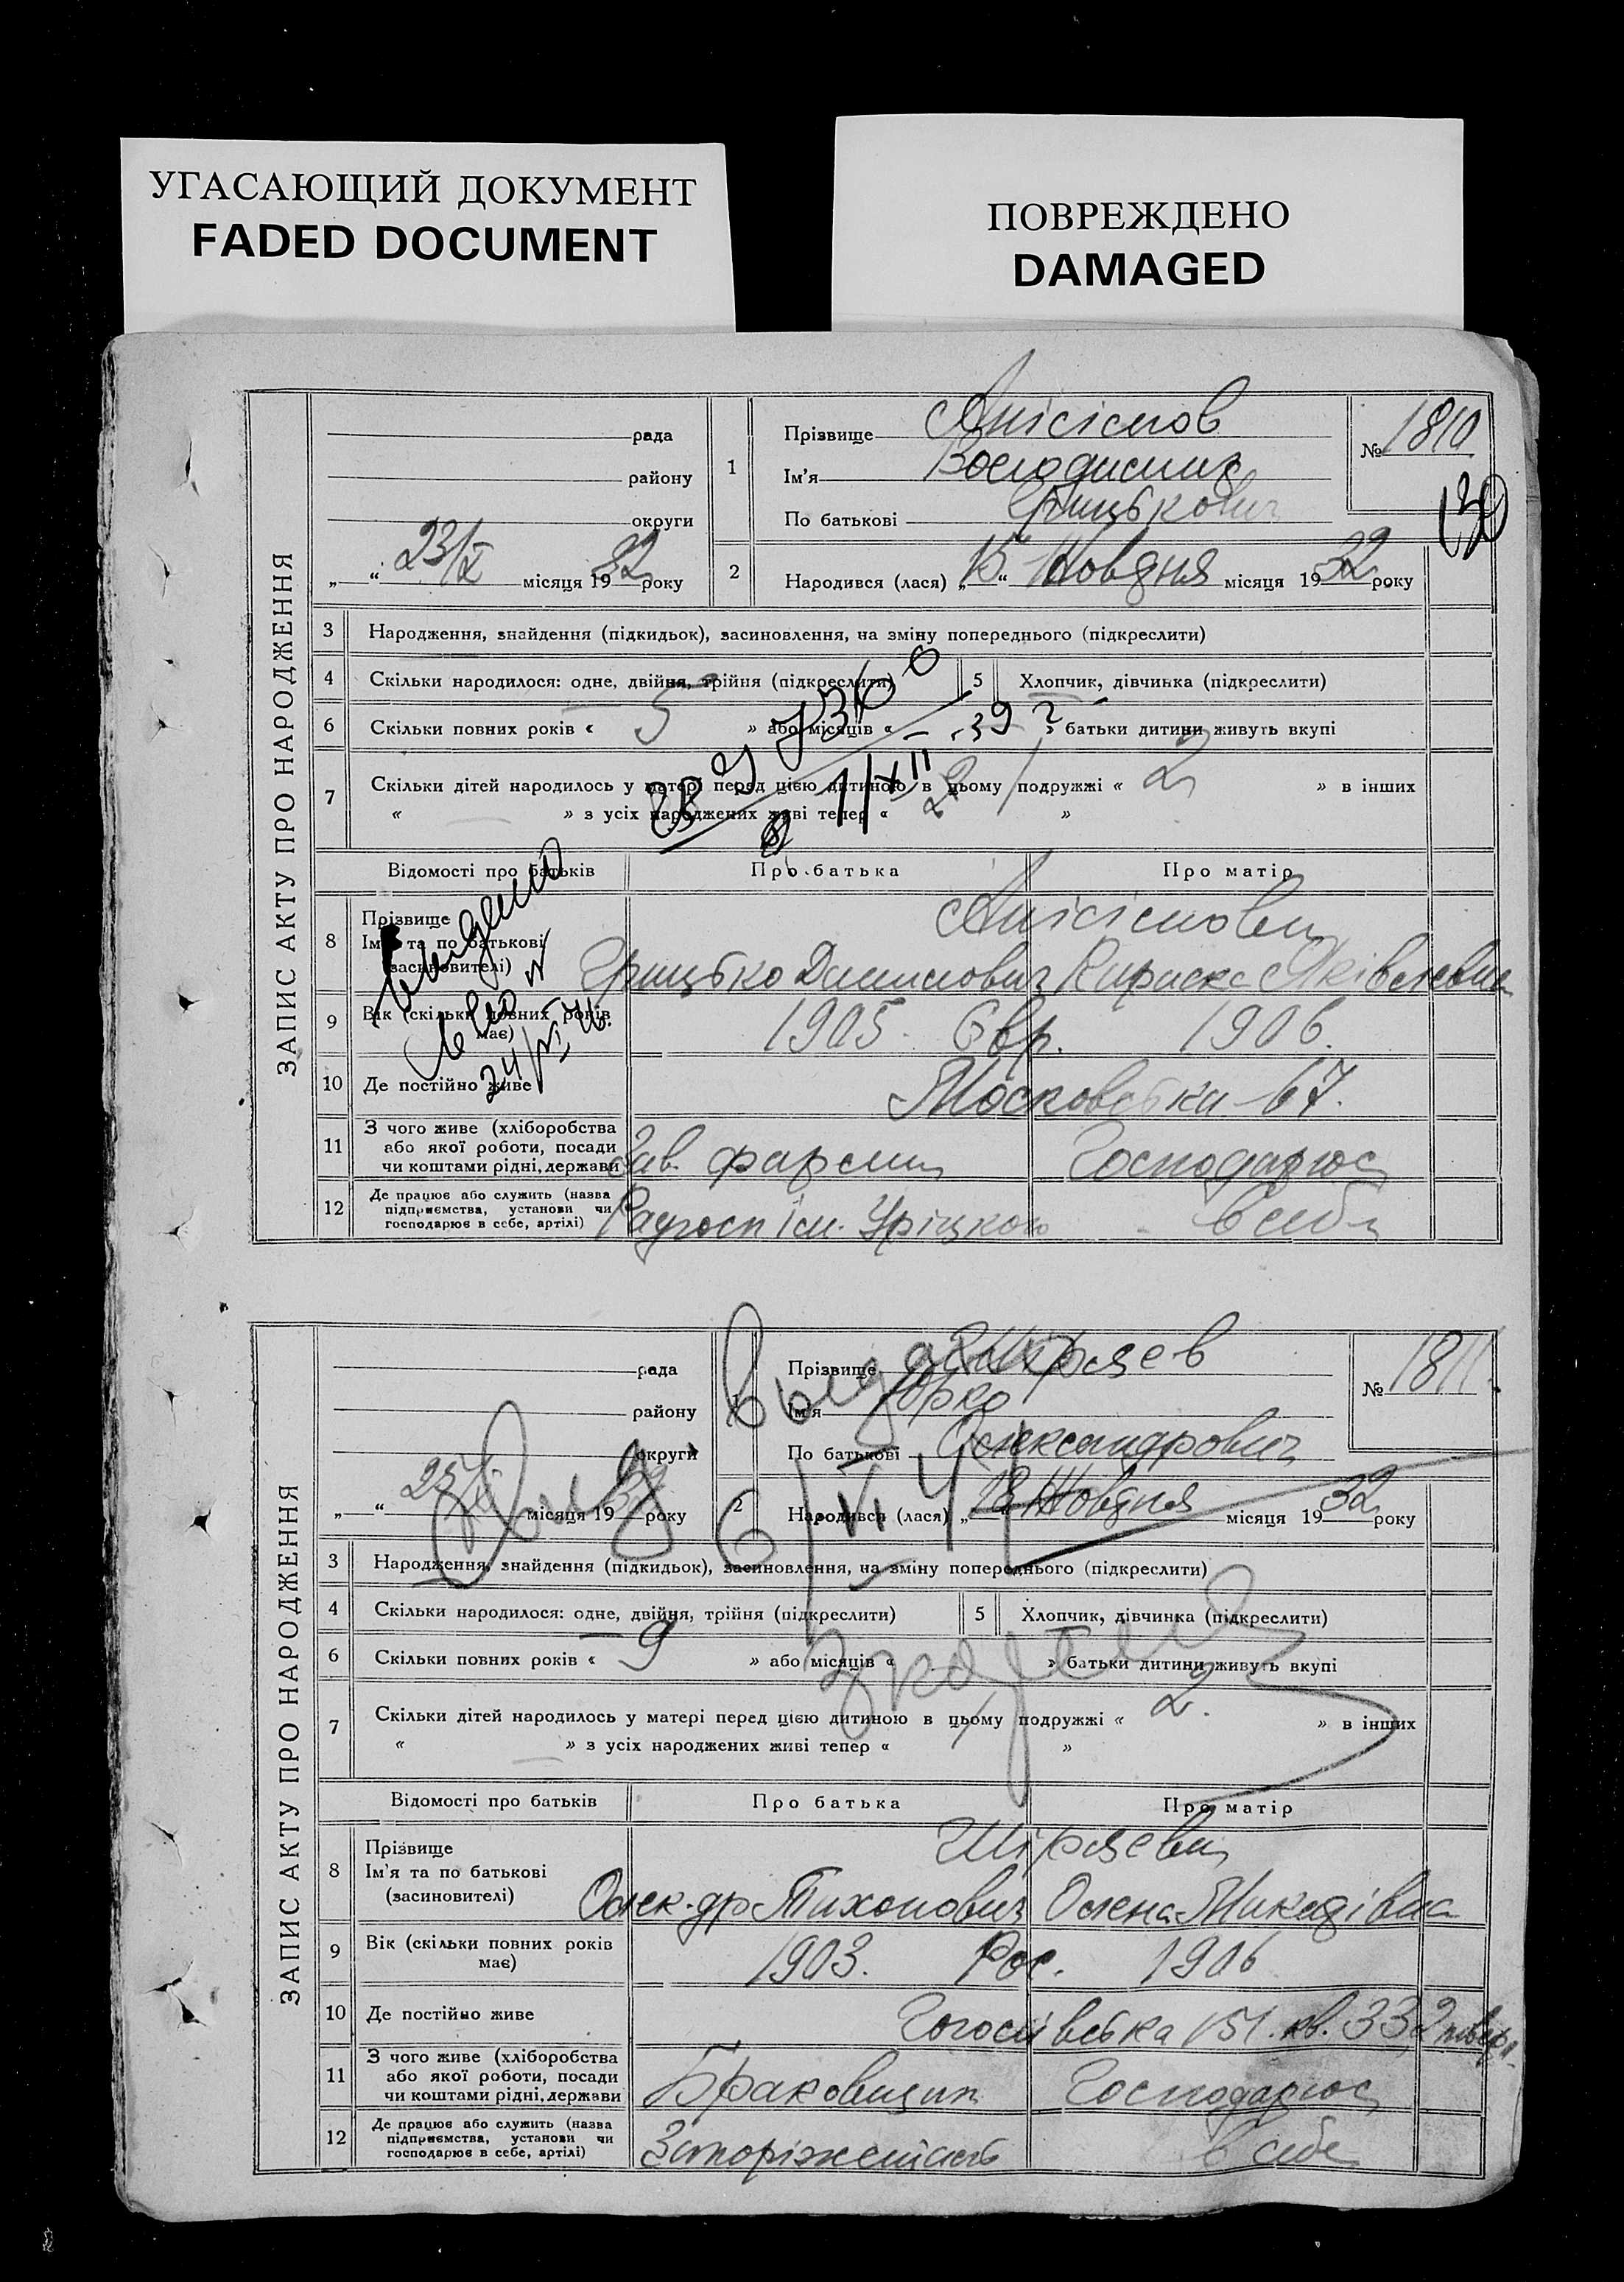 УГАСАЮЩИЙ ДОКУМЕНТ
FADED DOCUMENT
ПОВРЕЖДЕНО
DAMAGED
ЗАПИС АКТУ ПРО НАРОДЖЕННЯ
рада
району
округи
„ “ 23/X місяця 1932 року
1
Прізвище Анісімов
Ім'я Володимир
По батькові Грицькович
№ 1810
130
2 Народився (лася) „15“ Жовтня місяця 1932 року
3 Народження, знайдення (підкидьок), засиновлення, на зміну попереднього (підкреслити)
4 Скільки народилося: одне, двійня, трійня (підкреслити) 5 Хлопчик, дівчинка (підкреслити)
6 Скільки повних років « 5 » або місяців « » батьки дитини живуть вкупі
7 Скільки дітей народилось у матері перед цією дитиною в цьому подружжі « 2 » в інших
« — » з усіх народжених живі тепер « 2 »
Відомості про батьків Про батька Про матір
8 Прізвище Анісімови
Ім'я та по батькові
(засиновителі) Грицько Данилович
9 Вік (скільки повних років має) 1905. Євр. 1906.
10 Де постійно живе Московська 67.
11 З чого живе (хліборобства
або якої роботи, посади
чи коштами рідні, держави Зав. ферми Господарює
12 Де працює або служить (назва
підприємства, установи чи
господарює в себе, артілі) Радгосп ім. Уріцкого в себе
ЗАПИС АКТУ ПРО НАРОДЖЕННЯ
рада
району
округи
„ “ місяця 1932 року
1
Прізвище Ширяєв
Ім'я Юрко
По батькові Олександрович
№ 1811.
2 Народився (лася) „18 Жовтня місяця 1932 року
3 Народження, знайдення (підкидьок), засиновлення, на зміну попереднього (підкреслити)
4 Скільки народилося: одне, двійня, трійня (підкреслити) 5 Хлопчик, дівчинка (підкреслити)
6 Скільки повних років « 9 » або місяців « » батьки дитини живуть вкупі
7 Скільки дітей народилось у матері перед цією дитиною в цьому подружжі « 2. » в інших
« — » з усіх народжених живі тепер « 1 »
Відомості про батьків Про батька Про матір
8 Прізвище Ширяєви
Ім'я та по батькові
(засиновителі) Олек-др Тихонович Олена
9 Вік (скільки повних років має) 1903. Рос. 1906
10 Де постійно живе Гоголівська 151. кв. 33, 2 поверх.
11 З чого живе (хліборобства
або якої роботи, посади
чи коштами рідні, держави Браковщик Господарює
12 Де працює або служить (назва
підприємства, установи чи
господарює в себе, артілі) в себе